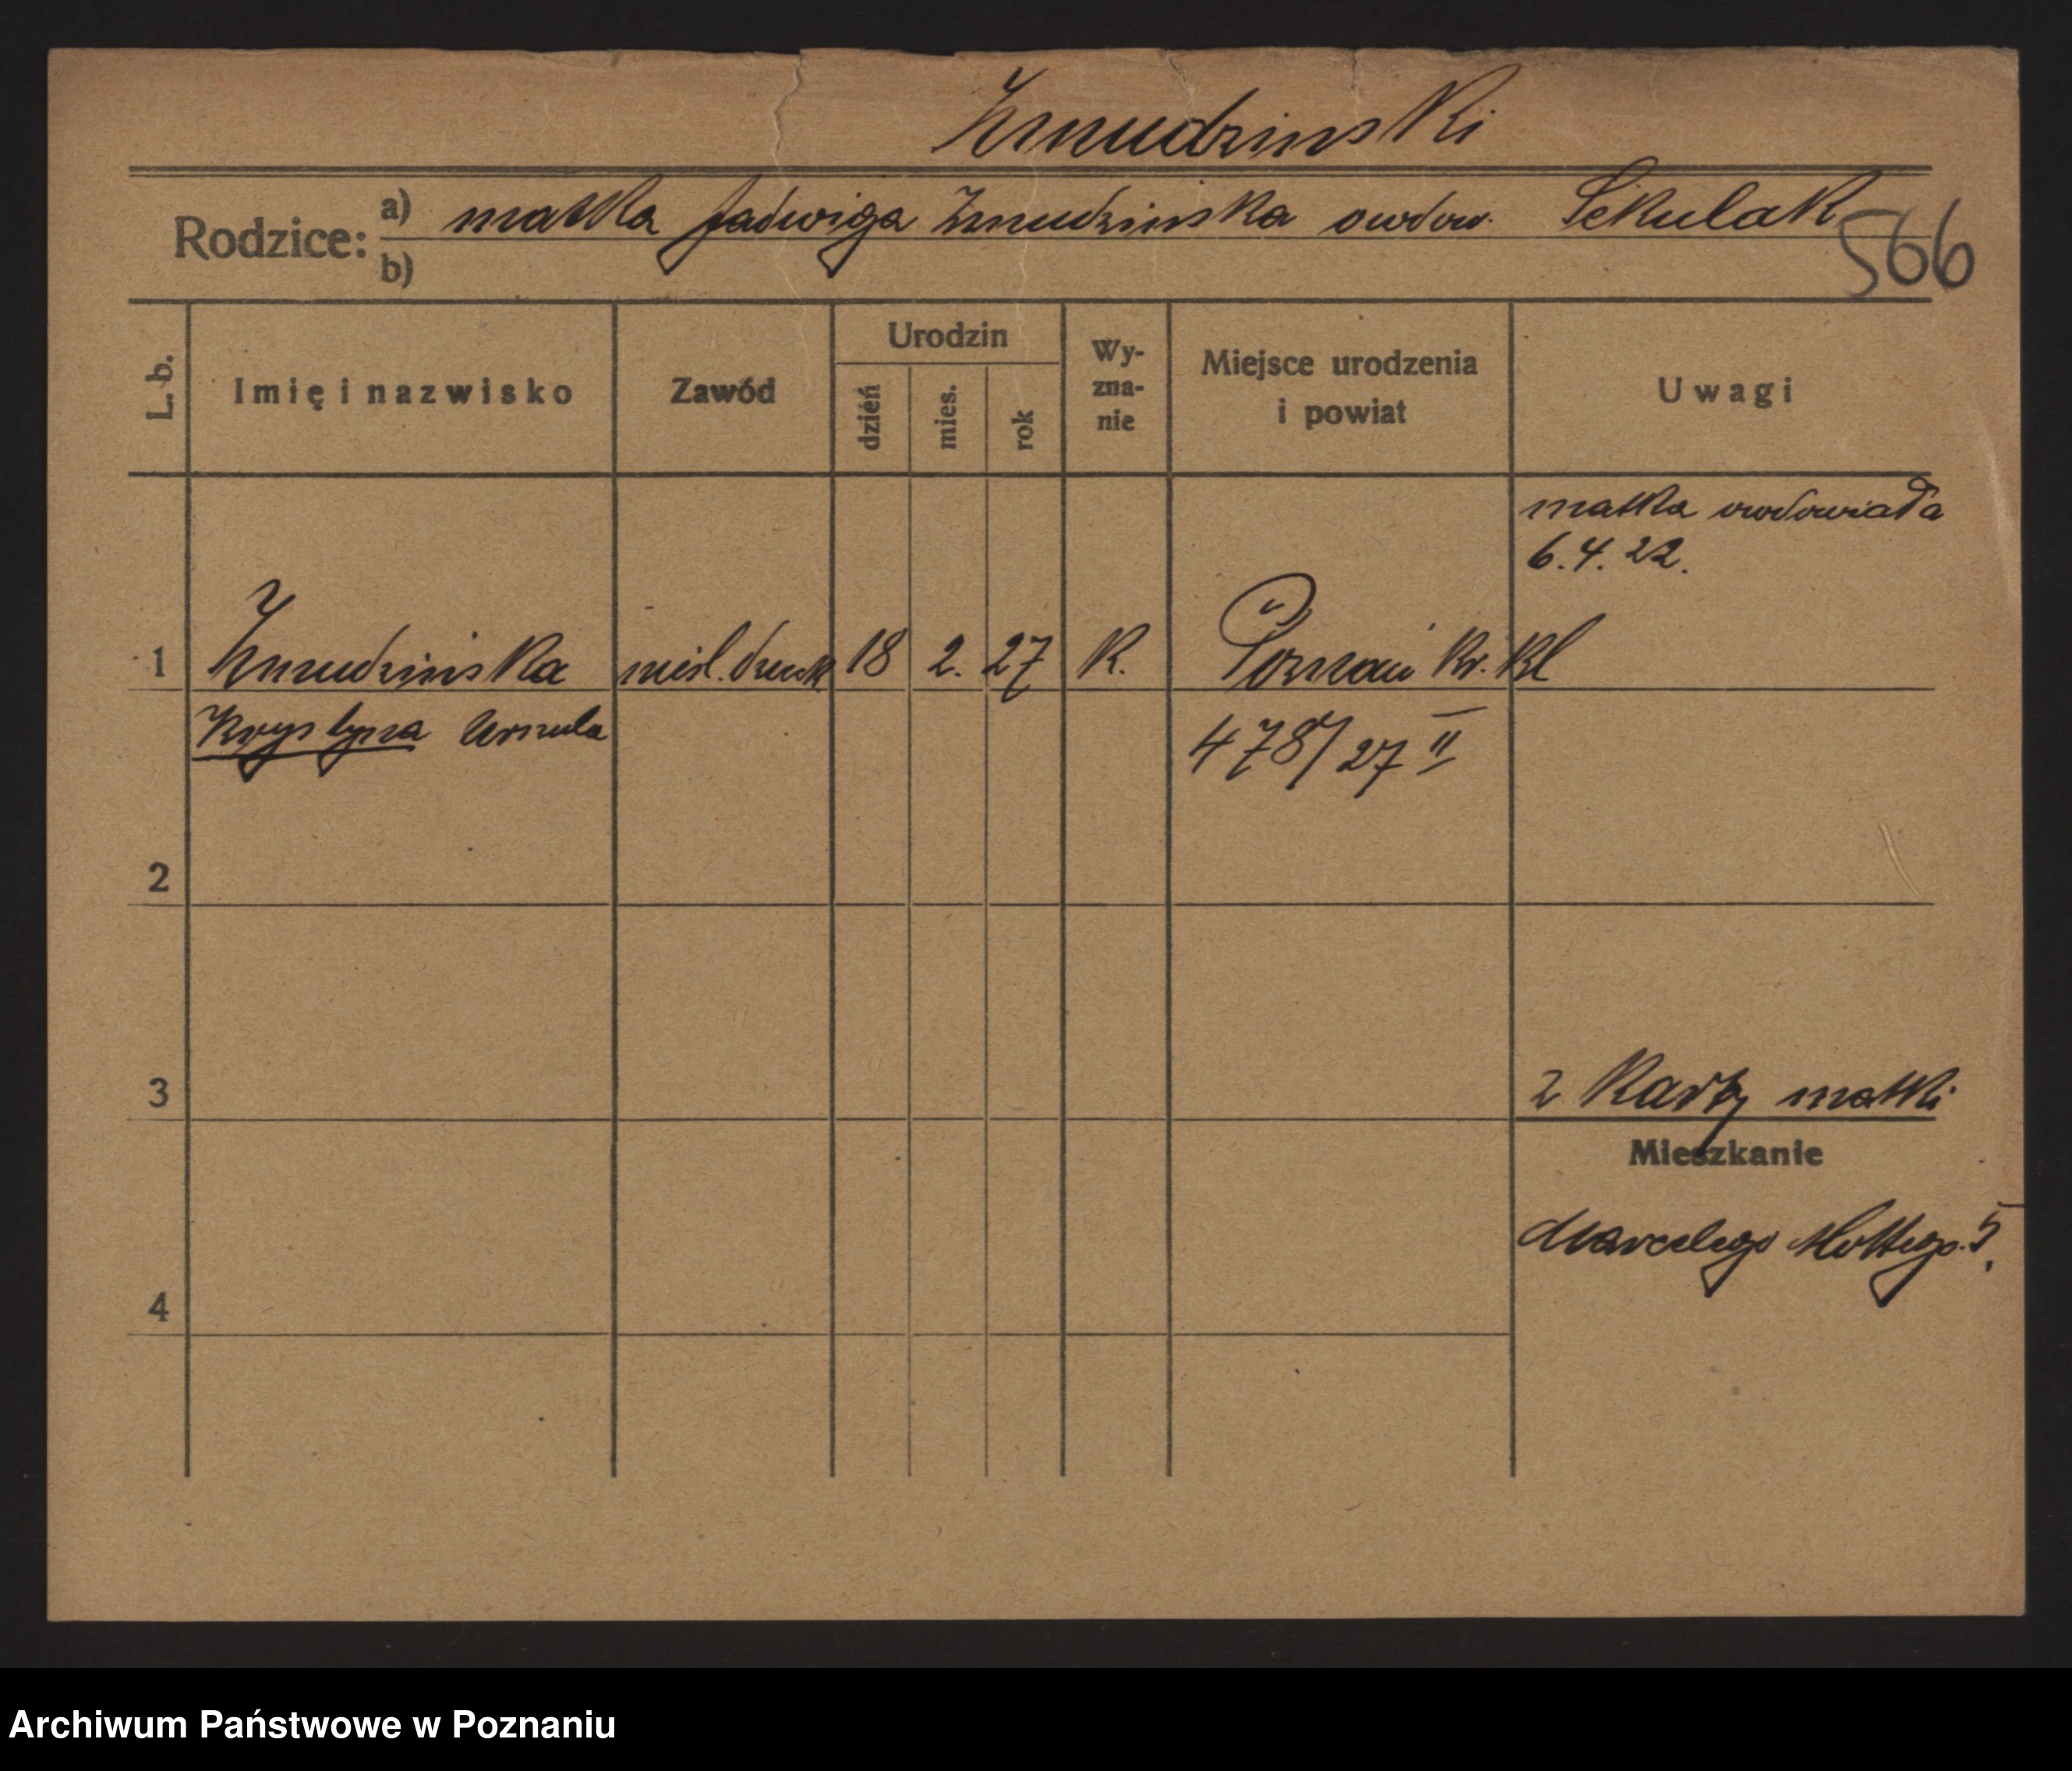 Żmudzinski
Rodzice: a) matka Jadwiga Żmudzinska owdow. Sekulak
b)
566
L. b. Imię i nazwisko Zawód Urodzin dzień mies. rok Wy-zna-nie Miejsce urodzenia i powiat Uwagi
matka owdowiała
6.4.22.
1 Żmudzińska nieśl. dzieck 18 2. 27 K. Poznań
Krystyna Urszula 478/27 II
2
3 2 Karty matki
Mieszkanie
Marcelego Mottego 5.
4
Archiwum Państwowe w Poznaniu